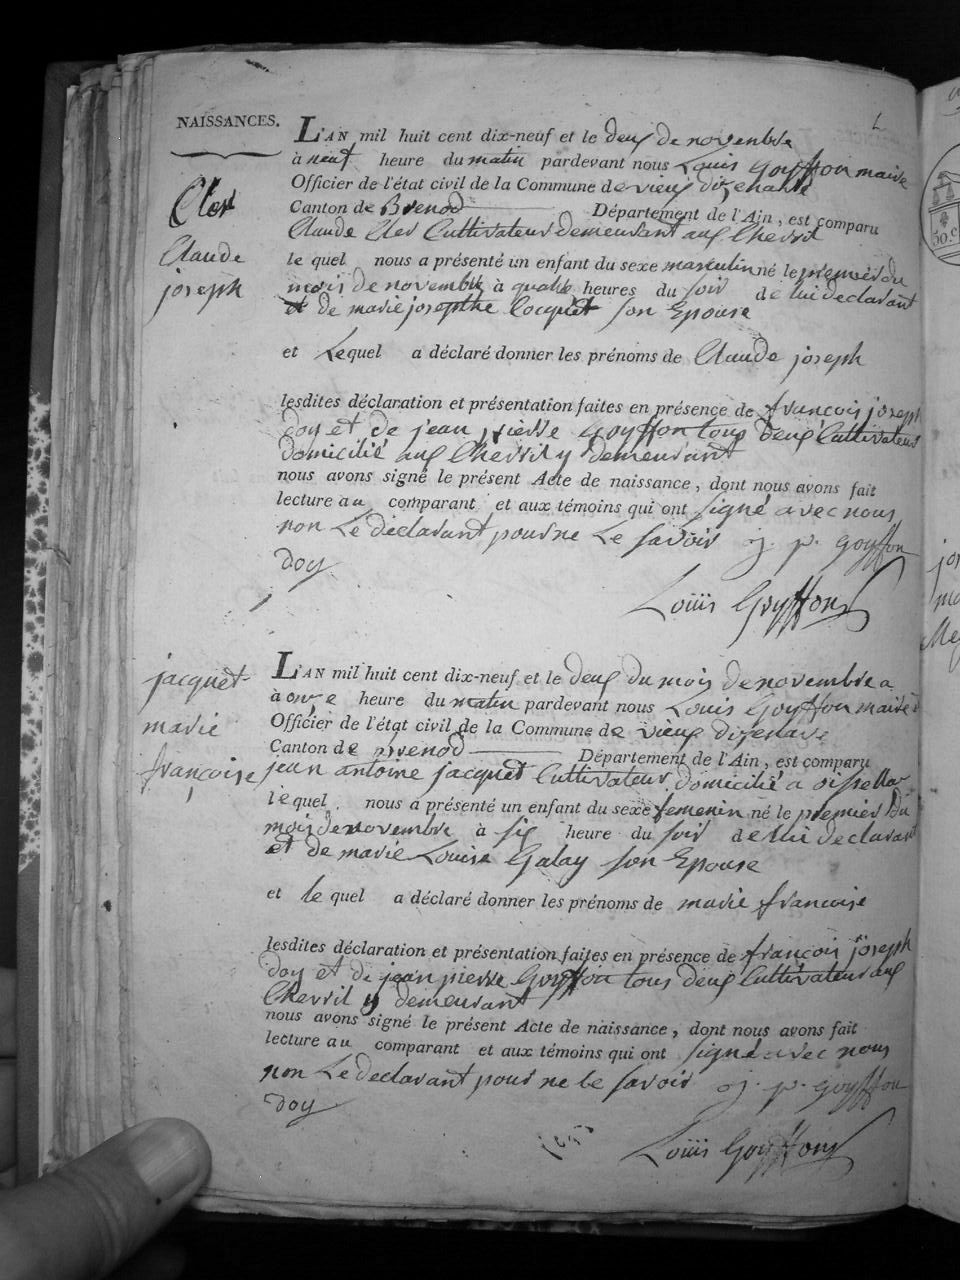 NAISSANCES.
L'AN mil huit cent dix-neuf et le deux de novembre
à neuf heure du matin pardevant nous Louis Goyffon maire
Officier de l'état civil de la Commune de vieux dizenave
Canton de Brenod Département de l'Ain, est comparu
Claude Cler Cultivateur demeurant aux Chevril
le quel nous a présenté un enfant du sexe masculin né le premier du
mois de novembre à quatre heures du soir de lui declarant
et de marie josepthe Cocquet son Epouse
et Lequel a déclaré donner les prénoms de Claude joseph
lesdites déclaration et présentation faites en présence de françois joseph
doy et de jean pierre Goyffon tous deux Cultivateurs
domicilié aux Chevril y demeurant
nous avons signé le présent Acte de naissance, dont nous avons fait
lecture au comparant et aux témoins qui ont signé avec nous
non Le déclarant pour ne Le savoir j. p. goyffon
doy
Louis Goyffon
Cler
Claude
joseph
jacquet
marie
françoise
L'AN mil huit cent dix-neuf et le deux du mois de novembre a
à onze heure du matin pardevant nous Louis Goyffon maire
Officier de l'état civil de la Commune de vieux dizenave
Canton de Brenod Département de l'Ain, est comparu
jean antoine jacquet Cultivateur domicilié a oissella
lequel nous a présenté un enfant du sexe femenin né le premier du
mois de novembre à six heure du soir de lui declarant
et de marie Louise Galay son Epouse
et le quel a déclaré donner les prénoms de marie francoise
lesdites déclaration et présentation faites en présence de françois joseph
doy et de jean pierre Goyffon tous deux Cultivateur aux
Chevril y demeurant
nous avons signé le présent Acte de naissance, dont nous avons fait
lecture au comparant et aux témoins qui ont signé avec nous
non Le declarant pour ne le savoir j. p. goyffon
doy
Louis Goyffon